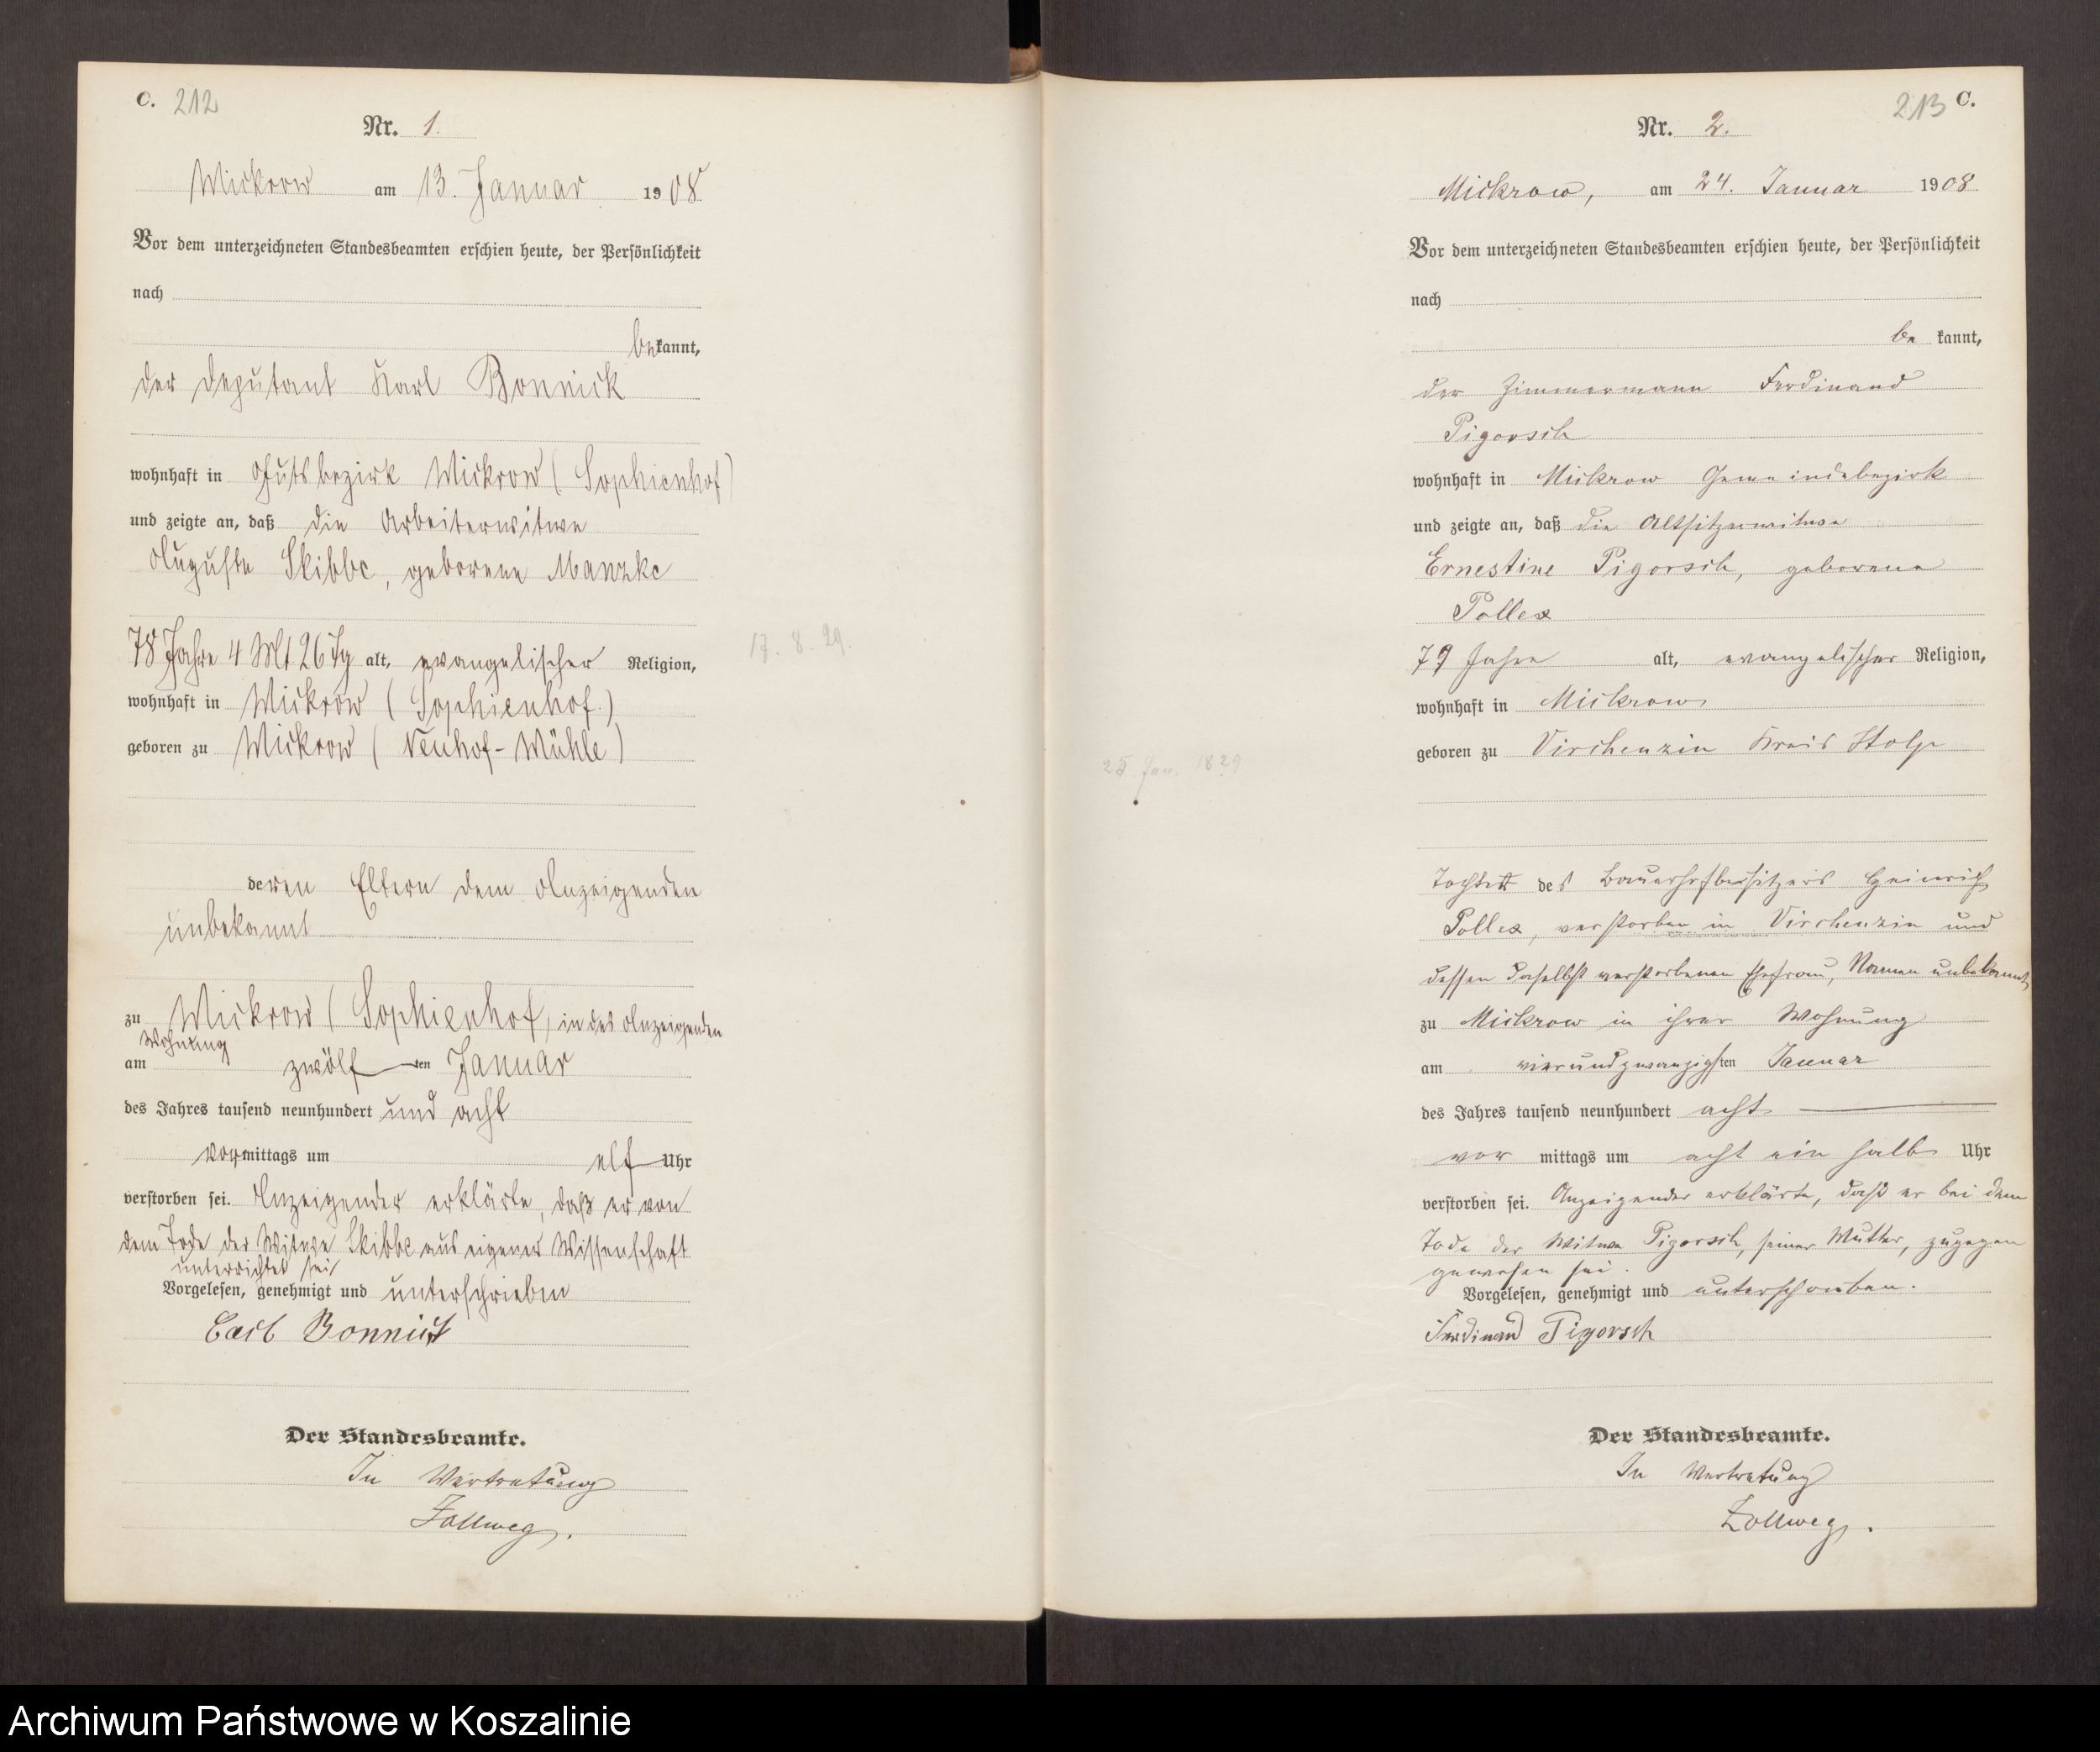 C. 212
Nr. 1.
Mickrow am 13. Januar 1908.
Vor dem unterzeichneten Standesbeamten erschien heute, der Persönlichkeit
nach
bekannt,
der Deputant Karl Bonnick
wohnhaft in Gutsbezirk Mickrow (Sophienhof)
und zeigte an, daß die Arbeiterwitwe
Auguste Skibbe, geborene Manzke
78 Jahre 4 Mt 26 Tg alt, evangelischer Religion,
17. 8. 29.
wohnhaft in Mickrow (Sophienhof)
geboren zu Mickrow (Neuhof-Mühle)
deren Eltern dem Anzeigenden
unbekannt
zu Mickrow (Sophienhof) in des Anzeigenden
Wohnung
am zwölften Januar
des Jahres tausend neunhundert und acht
vormittags um elf Uhr
verstorben sei. Anzeigender erklärte, daß er von
dem Tode der Witwe Skibbe aus eigener Wissenschaft
unterrichtet sei
Vorgelesen, genehmigt und unterschrieben
Carl Bonnick
Der Standesbeamte.
In Vertretung
Zollweg.
213 C.
Nr. 2.
Mickrow, am 24. Januar 1908.
Vor dem unterzeichneten Standesbeamten erschien heute, der Persönlichkeit
nach
be kannt,
der Zimmermann Ferdinand
Pigorsch
wohnhaft in Mickrow Gemeindebezirk
und zeigte an, daß die Altsitzerwitwe
Ernestine Pigorsch, geborene
Pollex
79 Jahre alt, evangelischer Religion,
wohnhaft in Mickrow
geboren zu Virchenzin Kreis Stolp
25 Jan. 1829
Tochter des Bauerhofbesitzers Heinrich
Pollex, verstorben in Virchenzin und
dessen daselbst verstorbenen Ehefrau, Namen unbekannt,
zu Mickrow in ihrer Wohnung
am vierundzwanzigsten Januar
des Jahres tausend neunhundert acht
vor mittags um acht ein halb Uhr
verstorben sei. Anzeigender erklärte, daß er bei dem
Tode der Witwe Pigorsch, seiner Mutter, zugegen
gewesen sei.
Vorgelesen, genehmigt und unterschrieben.
Ferdinand Pigorsch
Der Standesbeamte.
In Vertretung
Zollweg.
Archiwum Państwowe w Koszalinie